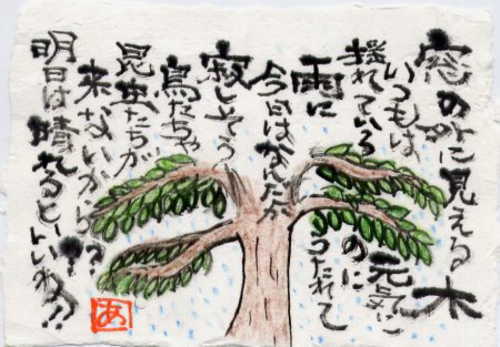 窓の外に見える木
いつもは元気に
揺れているのに
雨にうたれて
今日はなんだか
寂しそう
鳥たちや
昆虫たちが
来ないから??
明日は晴れるといいね!!
あ